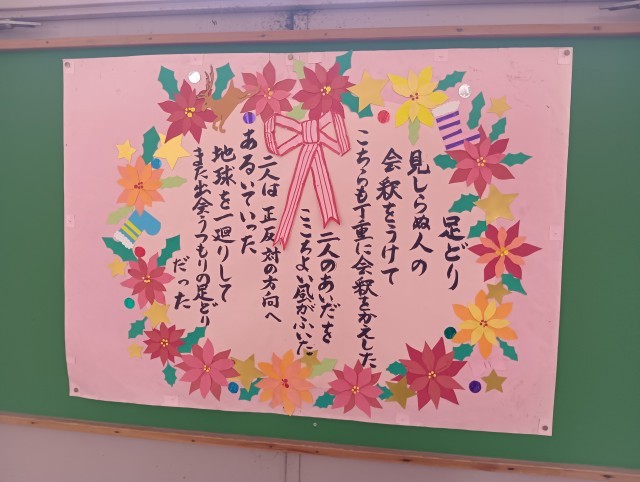 足どり
見しらぬ人の
会釈をうけて
こちらも丁重に会釈をかえした
二人のあいだを
ここちよい風がふいた
二人は正反対の方向へ
あるいていった
地球を一廻りして
また出会うつもりの足どり
だった